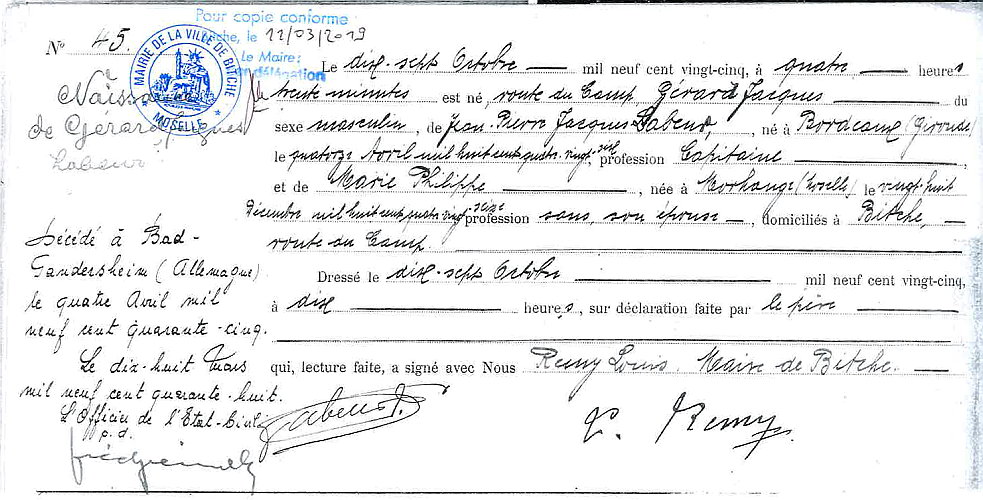 Pour copie conforme
Bitche, le 11/03/2019
Le Maire:
délégation
MAIRIE DE LA VILLE DE BITCHE
MOSELLE
N° 45.
Naissance
de Gérard Jacques
Labeur
Décédé à Bad-
Gandersheim (Allemagne)
le quatre Avril mil
neuf cent quarante-cinq.
Le dix-huit Mars
mil neuf cent quarante-huit.
L'Officier de l'Etat-Civil
p.d.
Le dix-sept Octobre mil neuf cent vingt-cinq, à quatre heures
trente minutes est né, route du Camp, Gérard Jacques du
sexe masculin, de Jean-Pierre Jacques Labeur, né à Bordeaux (Gironde)
le quatorze Avril mil huit cent quatre-vingt-dix profession Capitaine,
et de Marie Philippe, née à Morhange (Moselle) le vingt-huit
Décembre mil huit cent quatre-vingt-seize profession sans, son épouse, domiciliés à Bitche,
route du Camp
Dressé le dix-sept Octobre mil neuf cent vingt-cinq,
à dix heures, sur déclaration faite par le père
qui, lecture faite, a signé avec Nous Remy Louis, Maire de Bitche.
L. Remy